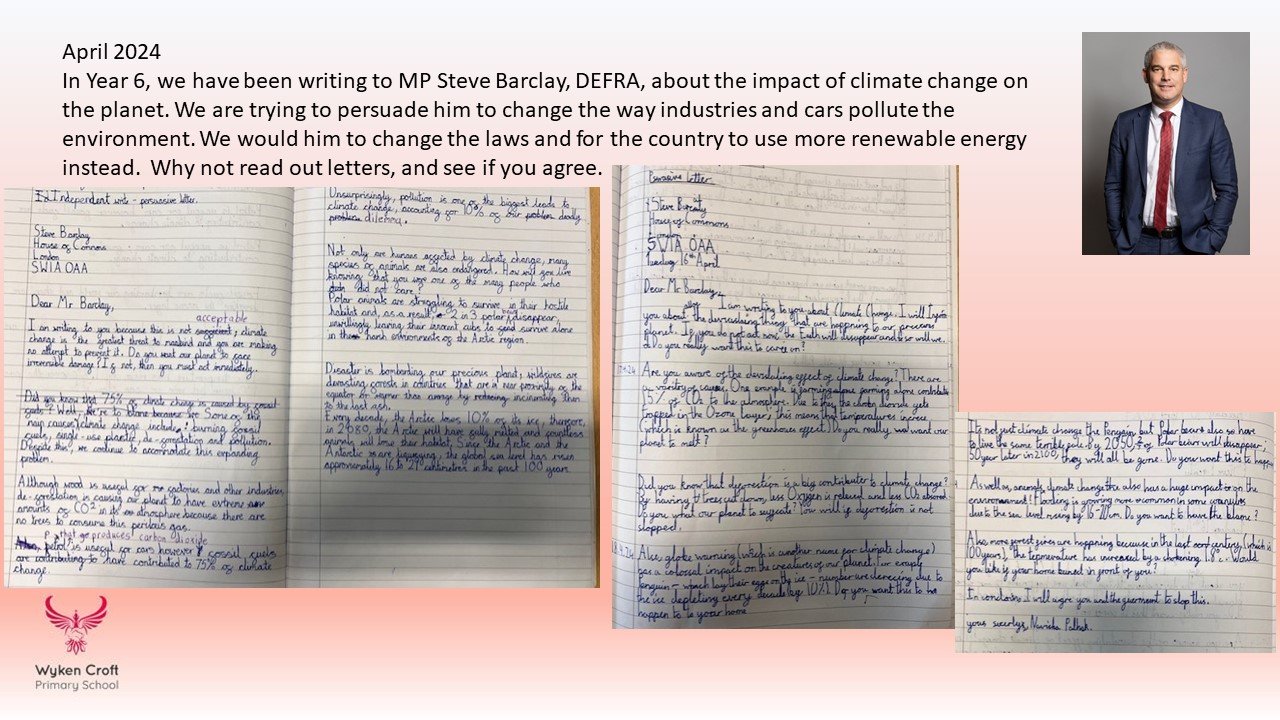 April 2024
In Year 6, we have been writing to MP Steve Barclay, DEFRA, about the impact of climate change on
the planet. We are trying to persuade him to change the way industries and cars pollute the
environment. We would him to change the laws and for the country to use more renewable energy
instead.  Why not read out letters, and see if you agree.
Independent write - persuasive letter.
Steve Barclay
House of Commons
London
SW1A OAA
Dear Mr. Barclay,
acceptable
I am writing to you because this is not climate
change is the greatest threat to mankind and you are making
no attempt to prevent it. Do you want our planet to face
irreversible damage? If not, then you must act immediately.
Did you know that 75% of climate change is caused by fossil
fuels? Well, we're to blame because Some of the
main causes climate change include: burning fossil
fuels, single-use plastic, de-forestation and pollution.
Despite this, we continue to accomodate this expanding
problem.
Although wood is useful for and other industries,
de-forestation is causing our planet to have extreme
amounts of CO2 in its atmosphere because there are
no trees to consume this perilous gas.
that produces carbon dioxide
petrol is useful for cars however fossil fuels
are contributing to have contributed to 75% of climate
change.
Unsurprisingly, pollution is one of the biggest leads to
climate change, accounting for 10% of our problem deadly
problem dilemma.
Not only are humans affected by climate change, many
species of animals are also endangered. How will you live
knowing that you were one of the many people who
did not care?
Polar animals are struggling to survive in their hostile
habitat and, as a result, 2 in 3 polar disappear,
unwillingly leaving their innocent cubs to survive alone
in harsh environments of the Arctic region.
Disaster is bombarding our precious planet; wildfires are
devasting forests in countries that are in near proximity of the
equator or warmer than average by reducing, incinerating them
to the last ash.
Every decade, the Arctic loses 10% of its ice, therefore,
in 2080, the Arctic will have fully melted and countless
animals will lose their habitat. Since the Arctic and the
Antarctic are liquifying, the global sea level has risen
approximately 16 to 21 centimetres in the past 100 years.
Persuasive letter
Steve Barclay
House of Commons
London
SW1A OAA
Tuesday 16th April
Dear Mr Barclay,
I am writing to you about Climate Change. I will
you about the devastating things that are happening to our precious
planet. If you do not act now the Earth will disappear and so will we.
Do you really want this to carry on?
17.4.24
Are you aware of the devastating effect of climate change? There are
a variety of causes. One example is farming alone contribute
15% of CO2 to the atmosphere. Due to this, the carbon dioxide gets
trapped in the Ozone layer, this means that temperatures increase
(which is known as the greenhouse effect) Do you really want our
planet to melt?
Did you know that deforestion is a big contributer to climate change?
By having trees cut down, less Oxygen is released and less CO2 absored.
Do you what our planet to suffocate? You will if deforestion is not
stopped.
18.4.24
Also, globe warming (which is another name for climate change)
has a colossal impact on the creatures of our planet. For
penguin - which lay their eggs on the ice - number are due to
the ice depleting every decade by 10%. Do you want this to
happen to is your home
It's not just climate change the Pengain but Polar bears also so have
to live the same terrible fate. By 2050, Polar bears will disappear;
50 year later in 2100, they will all be gone. Do you want this to happen
As well as animals, climate change the also has a huge impact on the
environment! Flooding is growing more common in some countries
due to the sea level rising by 16-21cm. Do you want to have the blame?
Also, more forest fires are happening because in the last century (which is
100 years), the temperature has increased by a shokening 1.8°c. Would
you like if your home burned in front of you?
In conclusion I will you and the to stop this.
yours
Wyken Croft
Primary School